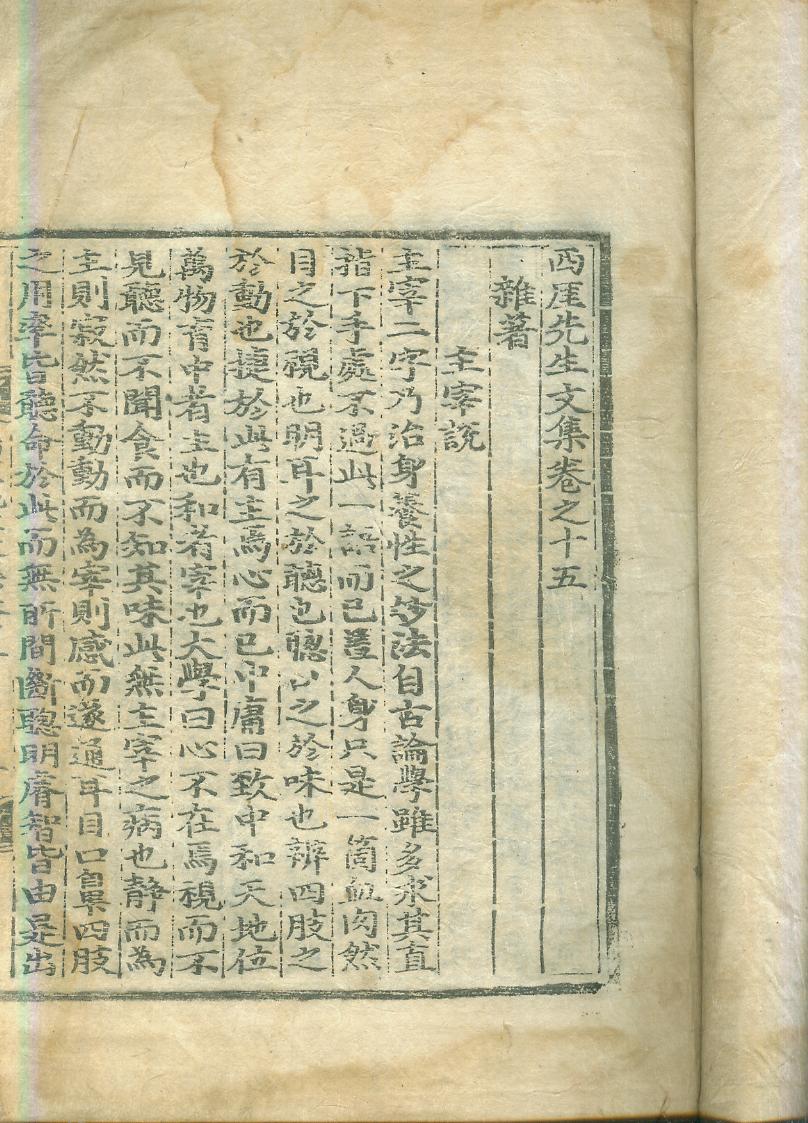 西厓先生文集卷之十五
雜著
主宰說
主宰二字乃治身養性之妙法自古論學雖多求其直
指下手處不過此一語而已盖人身只是一箇血肉然
目之於視也明耳之於聽也聰口之於味也辨四肢之
於動也捷於此有主焉心而已中庸曰致中和天地位
萬物育中者主也和者宰也大學曰心不在焉視而不
見聽而不聞食而不知其味此無主宰之病也静而為
主則寂然不動動而為宰則感而遂通耳目口鼻四肢
之用率皆聽命於此而無所間斷聰明睿智皆由是出